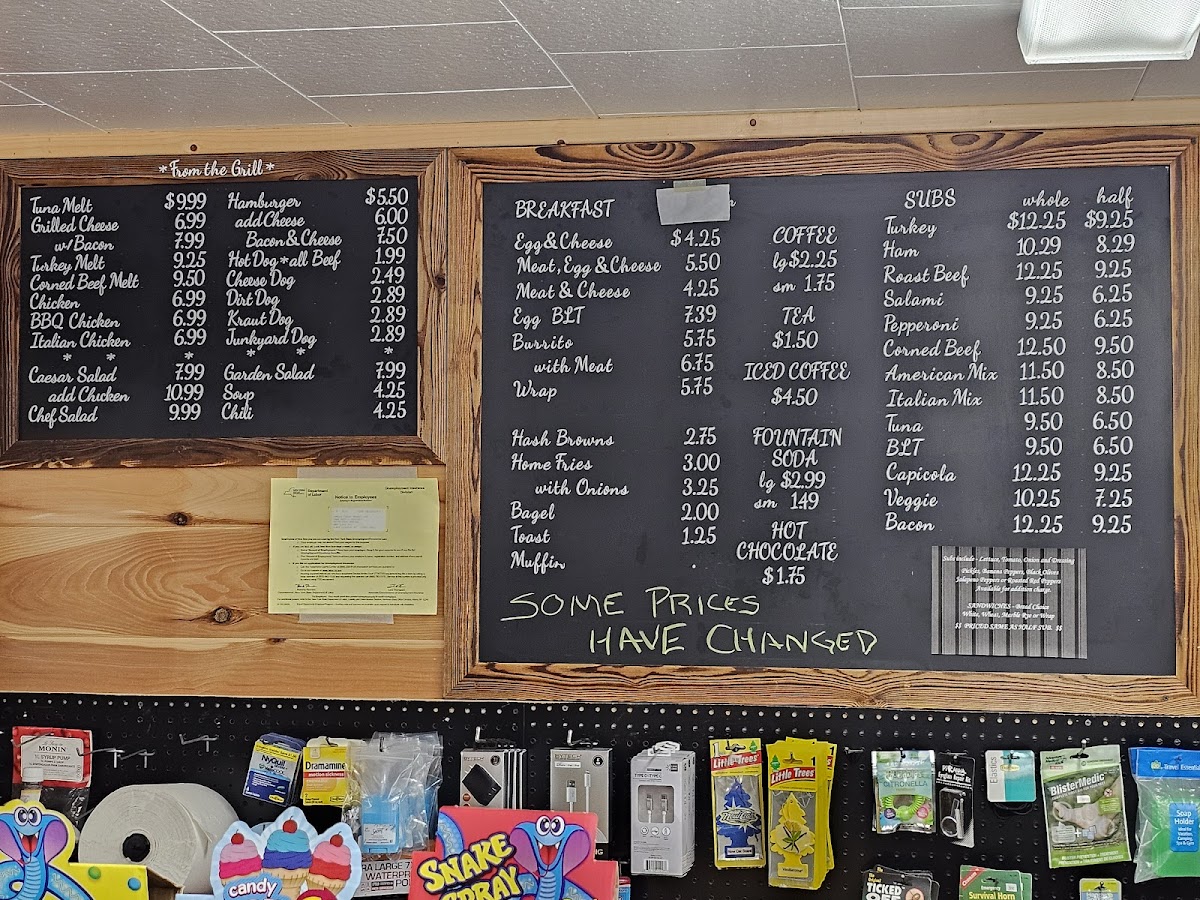 *From the Grill*
Tuna Melt $9.99
Grilled Cheese 6.99
w/Bacon 7.99
Turkey Melt 9.25
Corned Beef Melt 9.50
Chicken 6.99
BBQ Chicken 6.99
Italian Chicken 6.99
* * *
Caesar Salad 7.99
add Chicken 10.99
Chef Salad 9.99
Hamburger $5.50
add Cheese 6.00
Bacon & Cheese 7.50
Hot Dog *all Beef 1.99
Cheese Dog 2.49
Dirt Dog 2.89
Kraut Dog 2.89
Junkyard Dog 2.89
* * *
Garden Salad 7.99
Soup 4.25
Chili 4.25
BREAKFAST
Egg & Cheese $4.25
Meat, Egg & Cheese 5.50
Meat & Cheese 4.25
Egg BLT 7.39
Burrito 5.75
with Meat 6.75
Wrap 5.75
Hash Browns 2.75
Home Fries 3.00
with Onions 3.25
Bagel 2.00
Toast 1.25
Muffin
COFFEE
lg $2.25
sm 1.75
TEA
$1.50
ICED COFFEE
$4.50
FOUNTAIN
SODA
lg $2.99
sm 1.49
HOT
CHOCOLATE
$1.75
SUBS whole half
Turkey $12.25 $9.25
Ham 10.29 8.29
Roast Beef 12.25 9.25
Salami 9.25 6.25
Pepperoni 9.25 6.25
Corned Beef 12.50 9.50
American Mix 11.50 8.50
Italian Mix 11.50 8.50
Tuna 9.50 6.50
BLT 9.50 6.50
Capicola 12.25 9.25
Veggie 10.25 7.25
Bacon 12.25 9.25
Subs include - Lettuce, Tomato, Onion and Dressing
Pickles, Banana Peppers, Black Olives
Jalapeno Peppers or Roasted Red Peppers
Available for addition charge.
SANDWICHES - Bread Choice
White, Wheat, Marble Rye or Wrap
$$ PRICED SAME AS HALF SUB. $$
SOME PRICES
HAVE CHANGED
Department
of Labor
Unemployment Insurance
Division
Notice to Employees
MONIN
SYRUP PUMP
NyQuil
Dramamine
motion sickness
candy
SNAKE
SPRAY
TYPE-C TYPE-C
Little Trees
Little Trees
CITRONELLA
Eyeglass Repair Kit
Elastics
BlisterMedic
Travel Essentials
Soap
Holder
TICKED
OFF
Emergency
Survival Horn